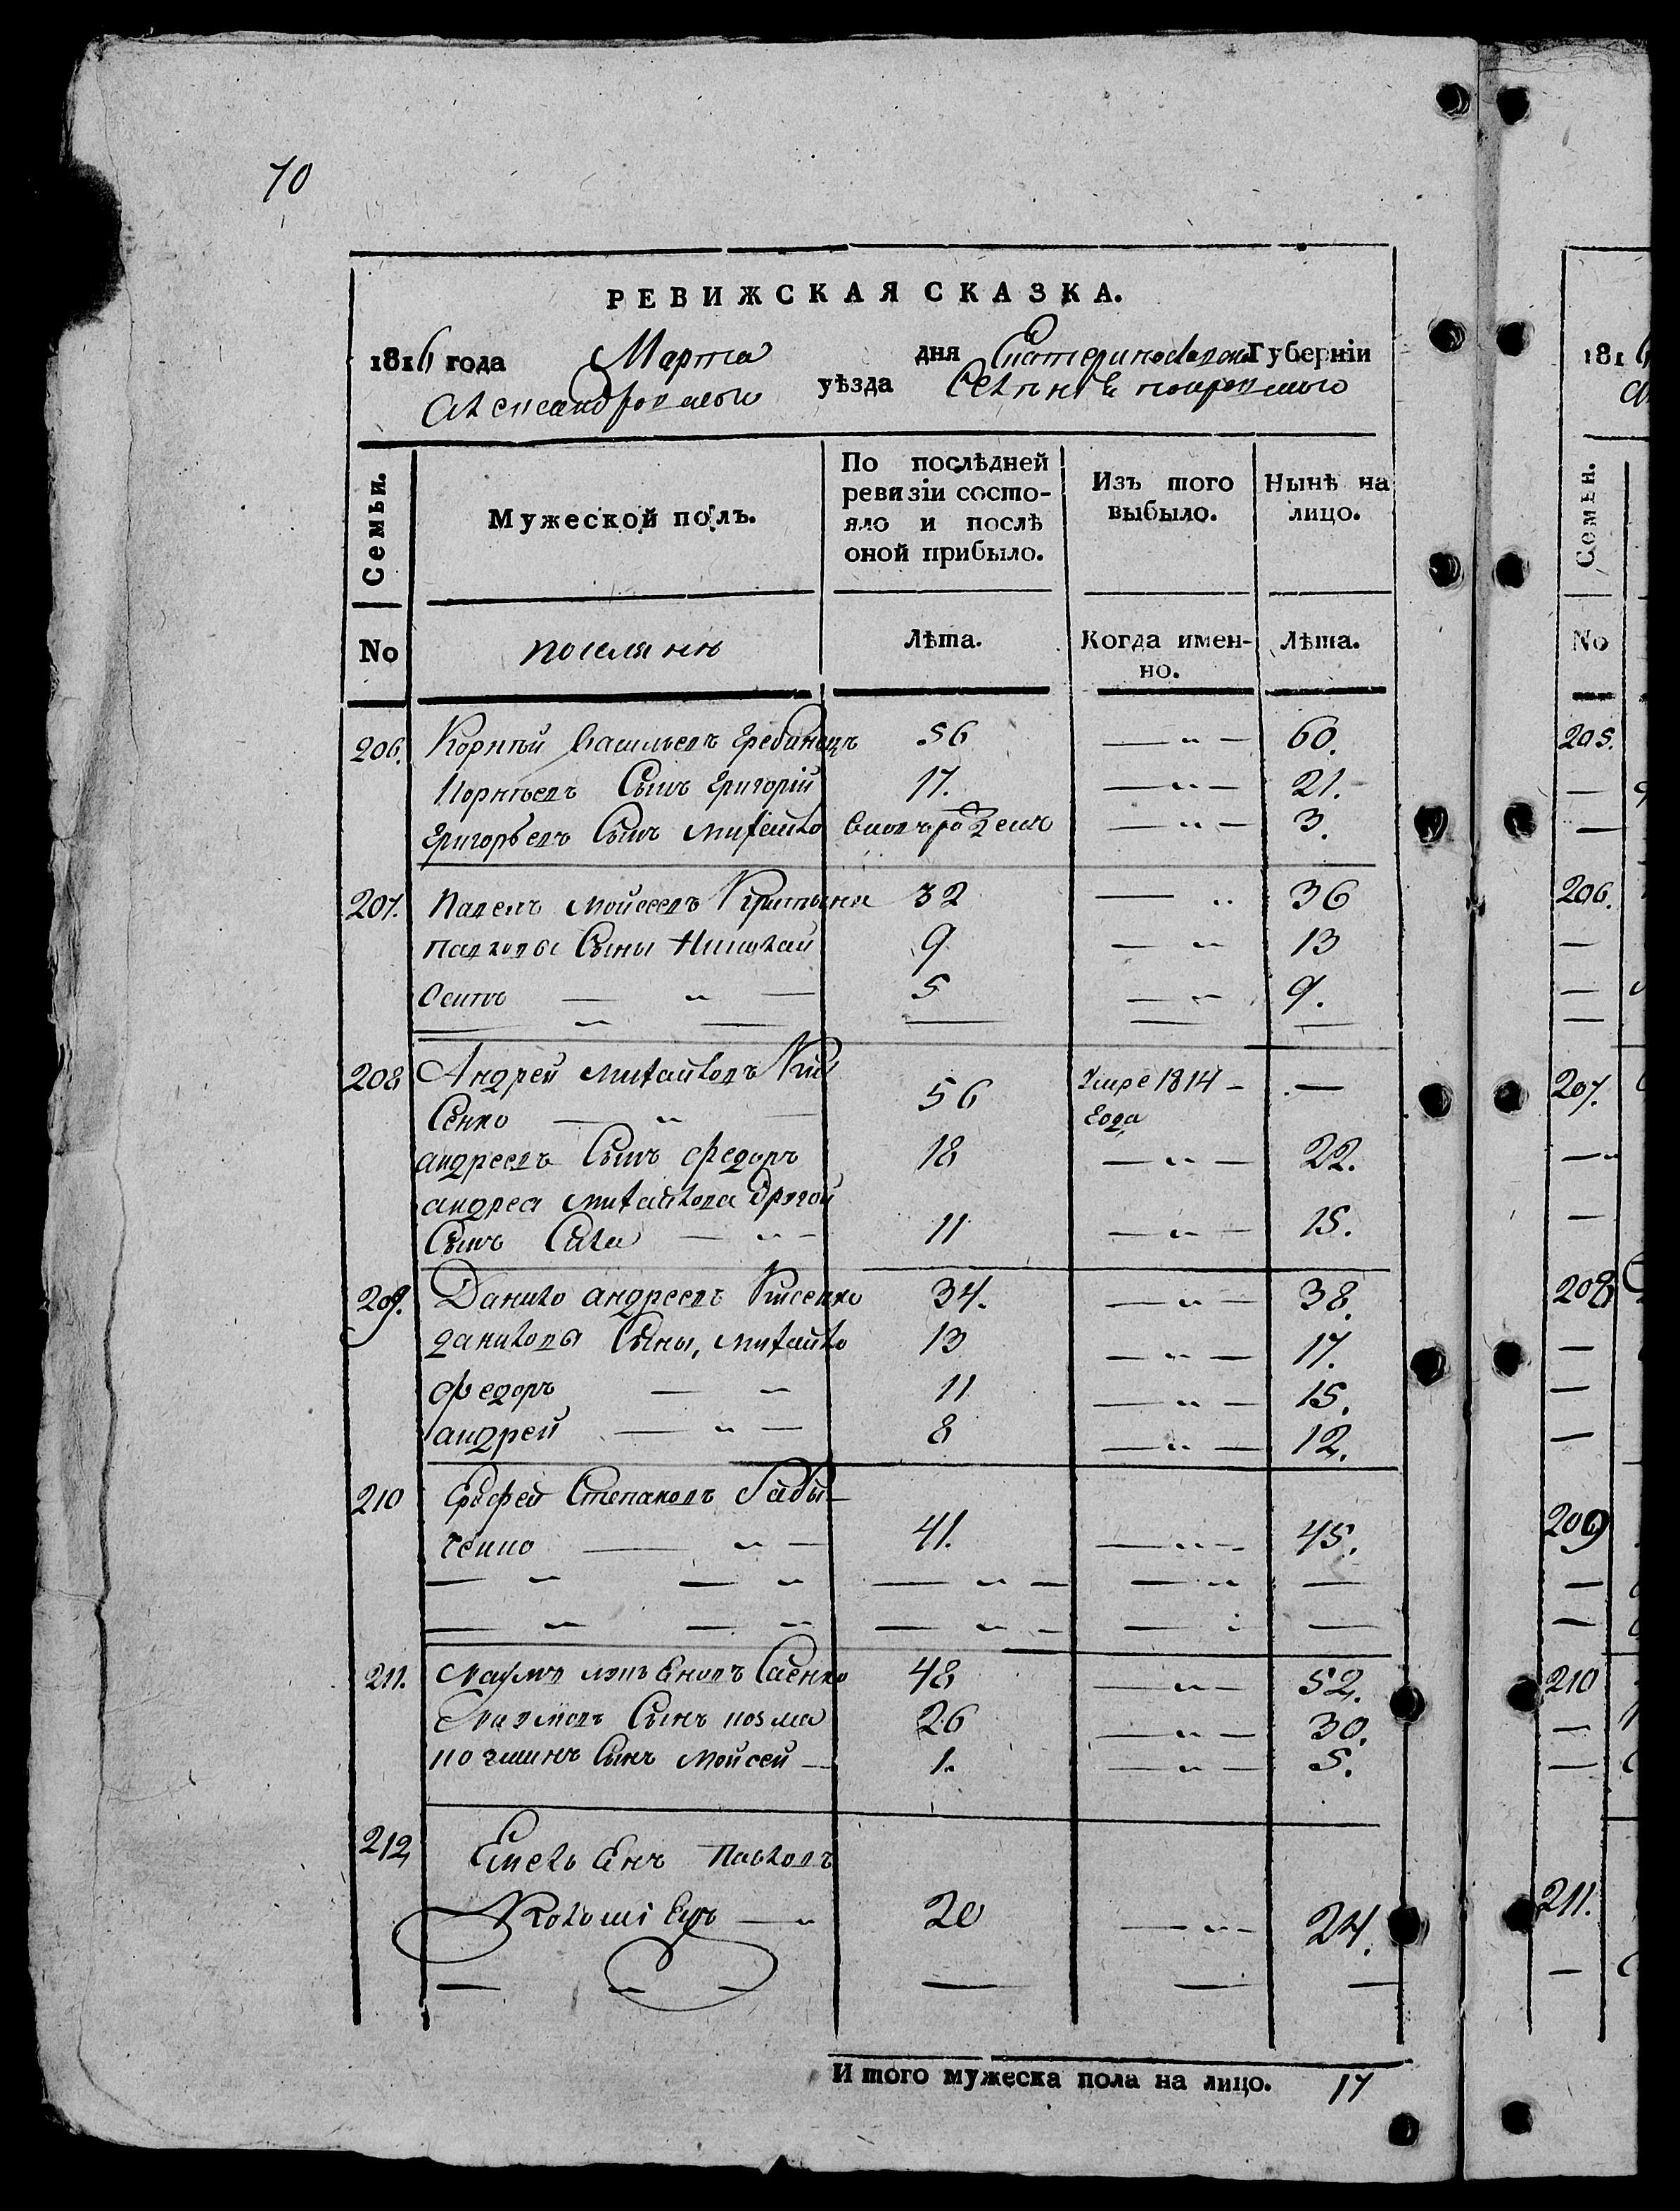 70
РЕВИЖСКАЯ СКАЗКА.
1816 года Марта дня Екатеринославской Губерніи
Александровского уѣзда Селѣнія покровского
Семьи. Мужеской полъ. По послѣдней ревизіи состояло и послѣ оной прибыло. Изъ того выбыло. Нынѣ на лицо.
No поселянѣ Лѣта. Когда именно. Лѣта.
206. Корнѣй Васильевъ Гребинецъ 56 — „ — 60.
Корнѣевъ Сынъ Григорій 17. — „ — 21.
Григорьевъ Сынъ Михайло вновъ рожденъ — „ — 3.
207. Павелъ Мойсеевъ 32 — „ 36
Павловы Сыны Николай 9 — „ 13
Осипъ — „ — 5 — „ 9.
208 Андрей Михайловъ Кий
Сенко — „ — 56 Умре 1814 — —
Года
андреевъ Сынъ Федоръ 18 — „ — 22.
андрея Михайлова Другой
Сынъ Сава — „ — 11 — „ — 15.
209. Данило андреевъ Кисенко 34. — „ — 38.
даниловы Сыны, Михайло 13 — „ — 17.
Федоръ — „ 11 — „ — 15.
андрей — „ — 8 — „ — 12.
210 Ерофей Степановъ
ченко — „ — 41. — „ — 45.
211. Наумъ Саенко 48 — „ — 52.
Наумовъ Сынъ козма 26 — „ — 30.
козминъ Сынъ Мойсей — 1. — „ — 5.
212 Емельянъ Павловъ
Коломіецъ — „ 20 — „ — 24.
Итого мужеска пола на лицо. 17
181
Семьи.
No
205.
206.
207.
208
209
210
211.